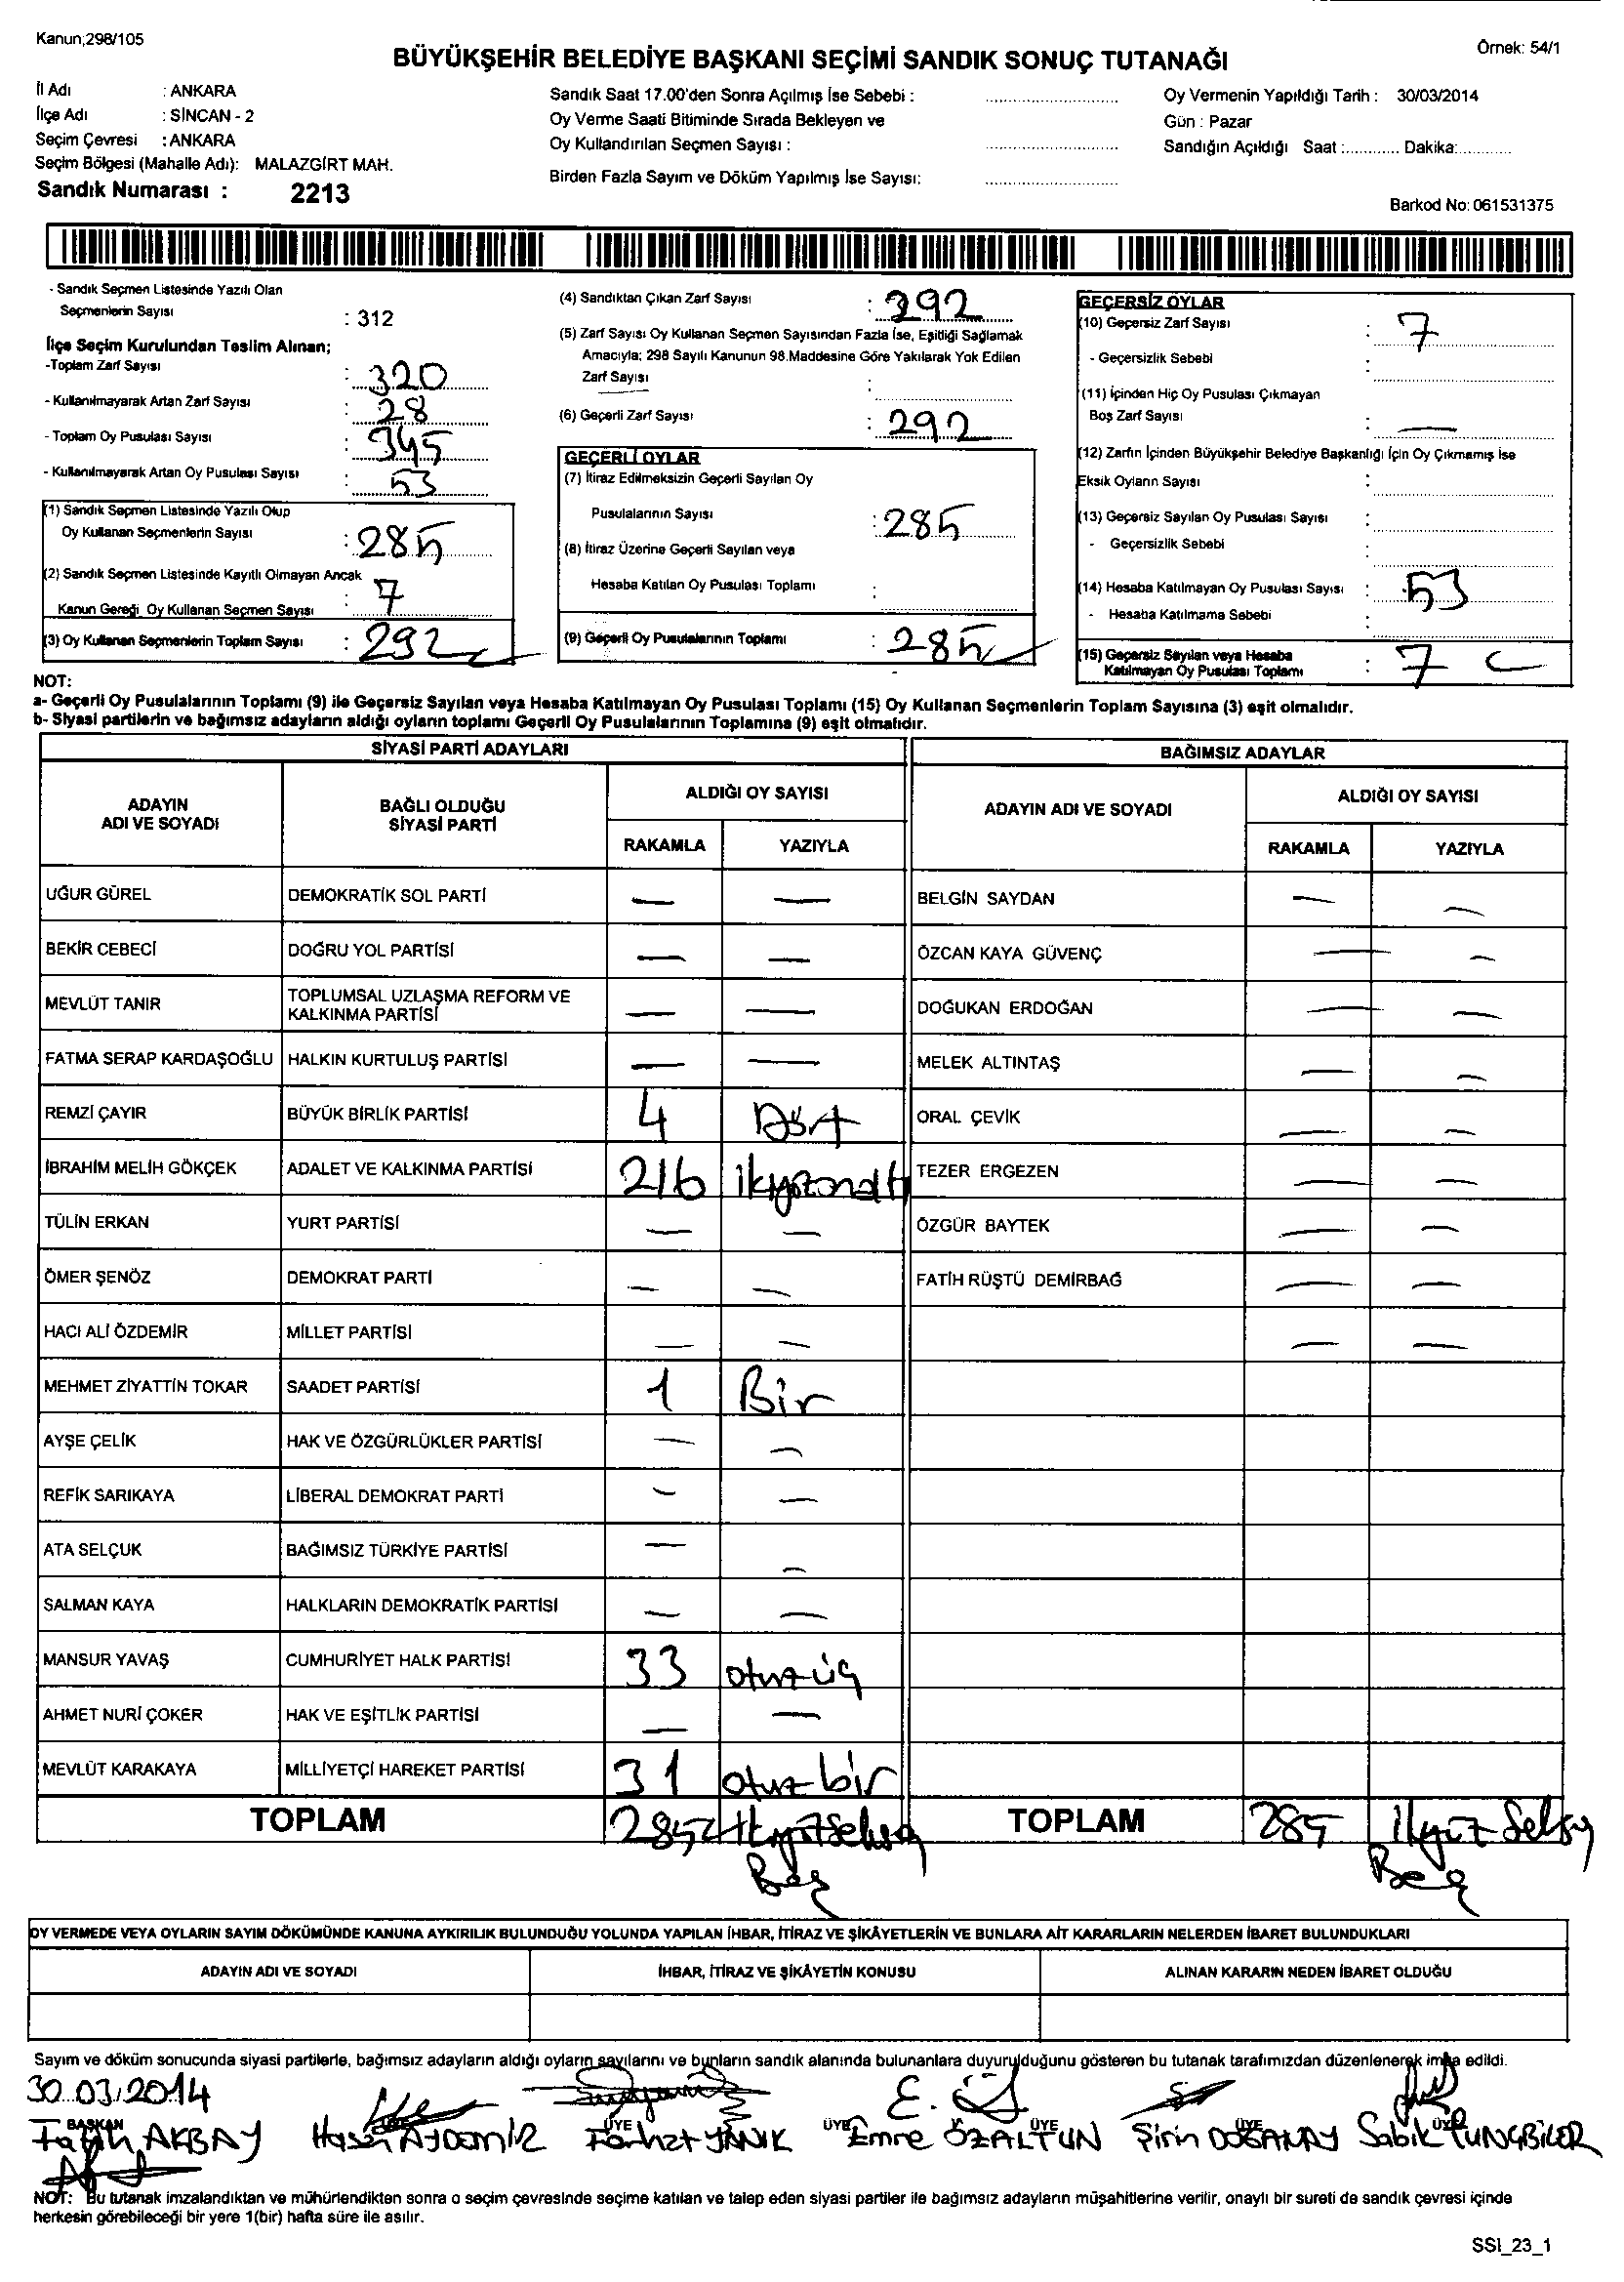 Kanun;298/105
Örnek: 54/1
BÜYÜKŞEHİR BELEDİYE BAŞKANI SEÇİMİ SANDIK SONUÇ TUTANAĞI
İl Adı : ANKARA
İlçe Adı : SİNCAN - 2
Seçim Çevresi : ANKARA
Seçim Bölgesi (Mahalle Adı): MALAZGİRT MAH.
Sandık Numarası : 2213
Sandık Saat 17.00'den Sonra Açılmış İse Sebebi :
Oy Verme Saati Bitiminde Sırada Bekleyen ve
Oy Kullandırılan Seçmen Sayısı :
Birden Fazla Sayım ve Döküm Yapılmış İse Sayısı:
Oy Vermenin Yapıldığı Tarih : 30/03/2014
Gün : Pazar
Sandığın Açıldığı Saat :............ Dakika:............
Barkod No: 061531375
- Sandık Seçmen Listesinde Yazılı Olan
Seçmenlerin Sayısı : 312
İlçe Seçim Kurulundan Teslim Alınan;
-Toplam Zarf Sayısı : 320
- Kullanılmayarak Artan Zarf Sayısı : 28
- Toplam Oy Pusulası Sayısı : 345
- Kullanılmayarak Artan Oy Pusulası Sayısı : 53
(1) Sandık Seçmen Listesinde Yazılı Olup
Oy Kullanan Seçmenlerin Sayısı : 285
(2) Sandık Seçmen Listesinde Kayıtlı Olmayan Ancak
Kanun Gereği Oy Kullanan Seçmen Sayısı : 7
(3) Oy Kullanan Seçmenlerin Toplam Sayısı : 292
(4) Sandıktan Çıkan Zarf Sayısı : 292
(5) Zarf Sayısı Oy Kullanan Seçmen Sayısından Fazla İse, Eşitliği Sağlamak
Amacıyla; 298 Sayılı Kanunun 98.Maddesine Göre Yakılarak Yok Edilen
Zarf Sayısı :
(6) Geçerli Zarf Sayısı : 292
GEÇERLİ OYLAR
(7) İtiraz Edilmeksizin Geçerli Sayılan Oy
Pusulalarının Sayısı : 285
(8) İtiraz Üzerine Geçerli Sayılan veya
Hesaba Katılan Oy Pusulası Toplamı :
(9) Geçerli Oy Pusulalarının Toplamı : 285
GEÇERSİZ OYLAR
(10) Geçersiz Zarf Sayısı : 7
- Geçersizlik Sebebi :
(11) İçinden Hiç Oy Pusulası Çıkmayan
Boş Zarf Sayısı : —
(12) Zarfın İçinden Büyükşehir Belediye Başkanlığı İçin Oy Çıkmamış İse
Eksik Oyların Sayısı :
(13) Geçersiz Sayılan Oy Pusulası Sayısı :
- Geçersizlik Sebebi :
(14) Hesaba Katılmayan Oy Pusulası Sayısı : 53
- Hesaba Katılmama Sebebi :
(15) Geçersiz Sayılan veya Hesaba
Katılmayan Oy Pusulası Toplamı : 7
NOT:
a- Geçerli Oy Pusulalarının Toplamı (9) ile Geçersiz Sayılan veya Hesaba Katılmayan Oy Pusulası Toplamı (15) Oy Kullanan Seçmenlerin Toplam Sayısına (3) eşit olmalıdır.
b- Siyasi partilerin ve bağımsız adayların aldığı oyların toplamı Geçerli Oy Pusulalarının Toplamına (9) eşit olmalıdır.
SİYASİ PARTİ ADAYLARI
ADAYIN ADI VE SOYADI
BAĞLI OLDUĞU SİYASİ PARTİ
ALDIĞI OY SAYISI
RAKAMLA YAZIYLA
UĞUR GÜREL DEMOKRATİK SOL PARTİ — —
BEKİR CEBECİ DOĞRU YOL PARTİSİ — —
MEVLÜT TANIR TOPLUMSAL UZLAŞMA REFORM VE KALKINMA PARTİSİ — —
FATMA SERAP KARDAŞOĞLU HALKIN KURTULUŞ PARTİSİ — —
REMZİ ÇAYIR BÜYÜK BİRLİK PARTİSİ 4 Dört
İBRAHİM MELİH GÖKÇEK ADALET VE KALKINMA PARTİSİ 216 ikiyüzonaltı
TÜLİN ERKAN YURT PARTİSİ — —
ÖMER ŞENÖZ DEMOKRAT PARTİ — —
HACI ALİ ÖZDEMİR MİLLET PARTİSİ — —
MEHMET ZİYATTİN TOKAR SAADET PARTİSİ 1 Bir
AYŞE ÇELİK HAK VE ÖZGÜRLÜKLER PARTİSİ — —
REFİK SARIKAYA LİBERAL DEMOKRAT PARTİ — —
ATA SELÇUK BAĞIMSIZ TÜRKİYE PARTİSİ — —
SALMAN KAYA HALKLARIN DEMOKRATİK PARTİSİ — —
MANSUR YAVAŞ CUMHURİYET HALK PARTİSİ 33 otuz üç
AHMET NURİ ÇOKER HAK VE EŞİTLİK PARTİSİ — —
MEVLÜT KARAKAYA MİLLİYETÇİ HAREKET PARTİSİ 31 otuz bir
TOPLAM 285 Beş
BAĞIMSIZ ADAYLAR
ADAYIN ADI VE SOYADI
ALDIĞI OY SAYISI
RAKAMLA YAZIYLA
BELGİN SAYDAN — —
ÖZCAN KAYA GÜVENÇ — —
DOĞUKAN ERDOĞAN — —
MELEK ALTINTAŞ — —
ORAL ÇEVİK — —
TEZER ERGEZEN — —
ÖZGÜR BAYTEK — —
FATİH RÜŞTÜ DEMİRBAĞ — —
— —
TOPLAM 285 Beş
OY VERMEDE VEYA OYLARIN SAYIM DÖKÜMÜNDE KANUNA AYKIRILIK BULUNDUĞU YOLUNDA YAPILAN İHBAR, İTİRAZ VE ŞİKÂYETLERİN VE BUNLARA AİT KARARLARIN NELERDEN İBARET BULUNDUKLARI
ADAYIN ADI VE SOYADI İHBAR, İTİRAZ VE ŞİKÂYETİN KONUSU ALINAN KARARIN NEDEN İBARET OLDUĞU
Sayım ve döküm sonucunda siyasi partilerle, bağımsız adayların aldığı oyların sayılarını ve bunların sandık alanında bulunanlara duyurulduğunu gösteren bu tutanak tarafımızdan düzenlenerek imza edildi.
30.03.2014
BAŞKAN ÜYE ÜYE ÜYE ÜYE
Fatih AKBAY Hasan AYDEMİR Ferhat YANIK Emre ÖZALTUN Şirin DOĞANAY Sabik TUNGBİLER
NOT: Bu tutanak imzalandıktan ve mühürlendikten sonra o seçim çevresinde seçime katılan ve talep eden siyasi partiler ile bağımsız adayların müşahitlerine verilir, onaylı bir sureti de sandık çevresi içinde
herkesin görebileceği bir yere 1(bir) hafta süre ile asılır.
SSI_23_1